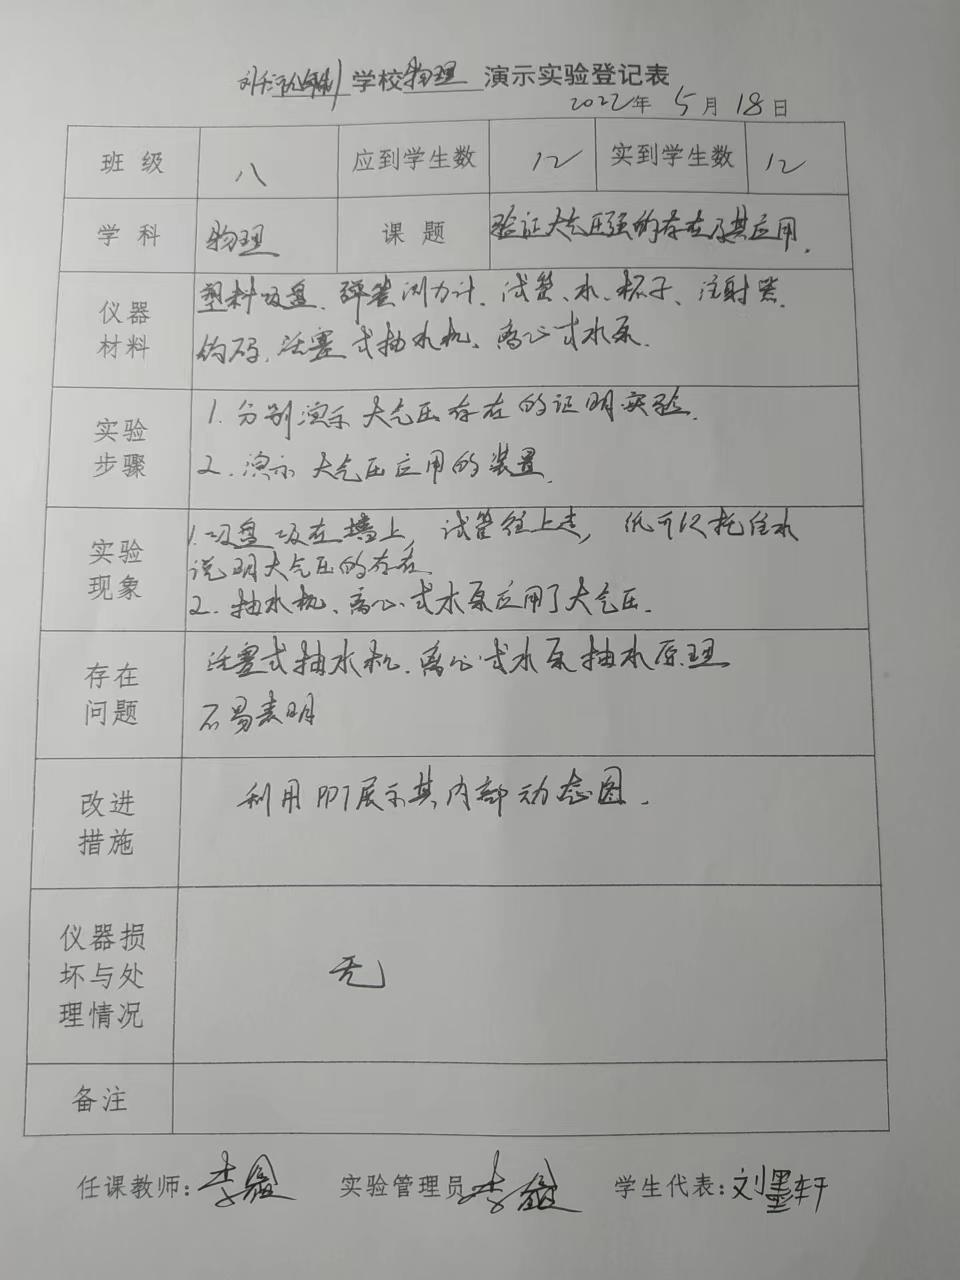 学校物理 演示实验登记表
2022年 5月 18日
班级 八 应到学生数 12 实到学生数 12
学科 物理 课题 验证大气压强的存在及其应用.
仪器材料 塑料吸盘、弹簧测力计、试管、水、杯子、注射器.
钩码、活塞式抽水机、离心式水泵.
实验步骤 1.分别演示大气压存在的证明实验.
2.演示大气压应用的装置.
实验现象 1.吸盘吸在墙上,试管往上走,纸片托住水
说明大气压的存在.
2.抽水机、离心式水泵应用了大气压.
存在问题 活塞式抽水机、离心式水泵抽水原理
不易表明
改进措施 利用PPT展示其内部动态图.
仪器损坏与处理情况 无
备注
任课教师: 李 实验管理员 李 学生代表: 刘墨轩